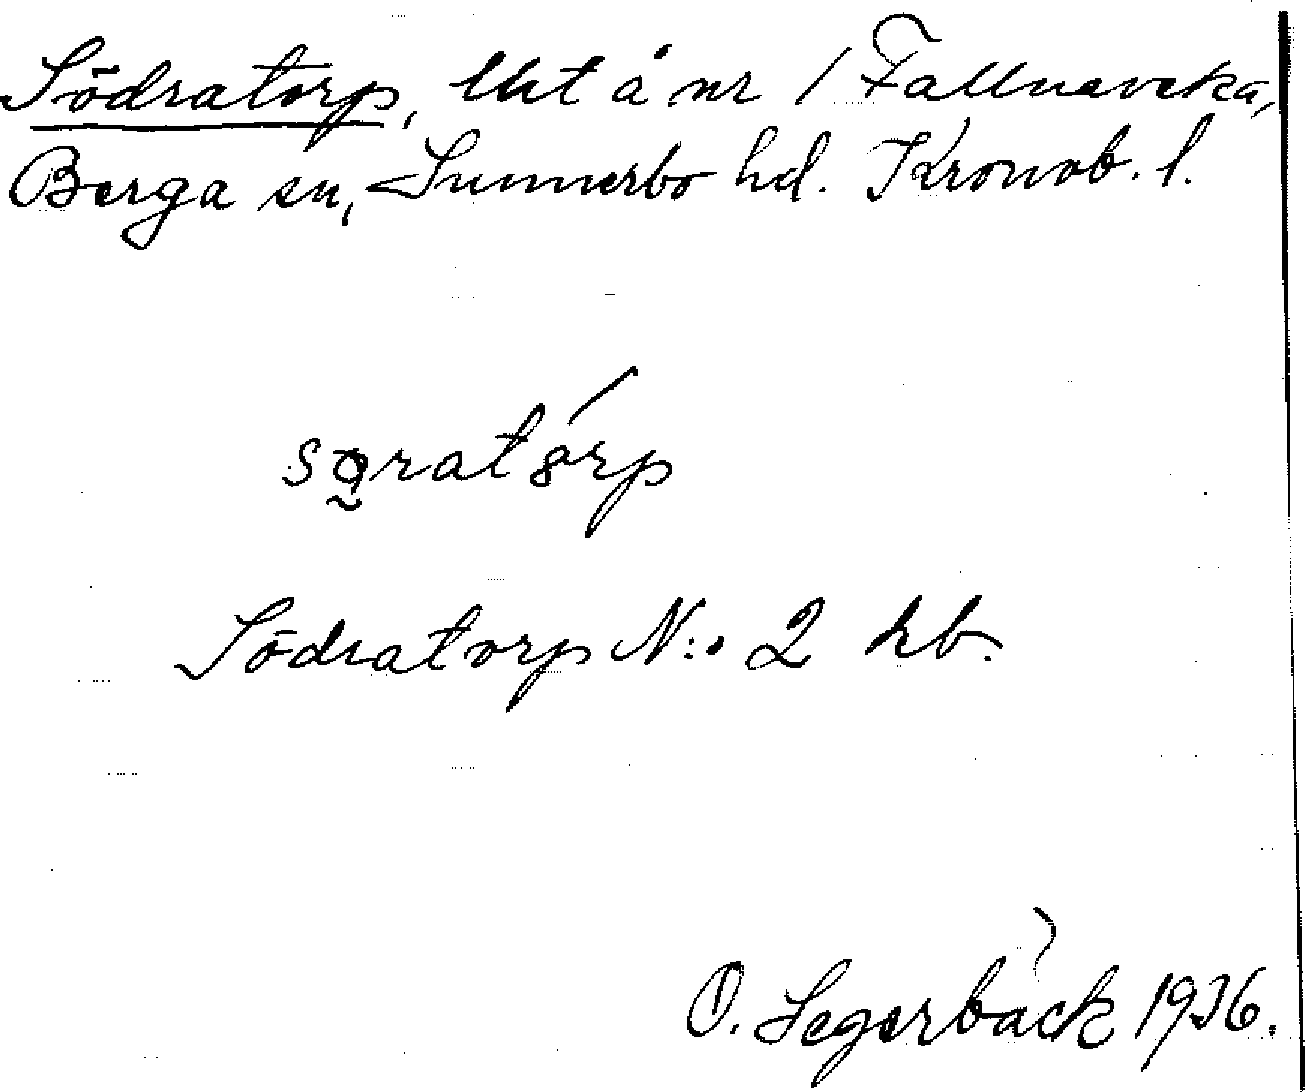 Södratorp, lht å nr 1 Fallnaveka,
Berga sn, Sunnerbo hd. Kronob. l.
Södratorp N:o 2 kb.
O. Segerbäck 1936.